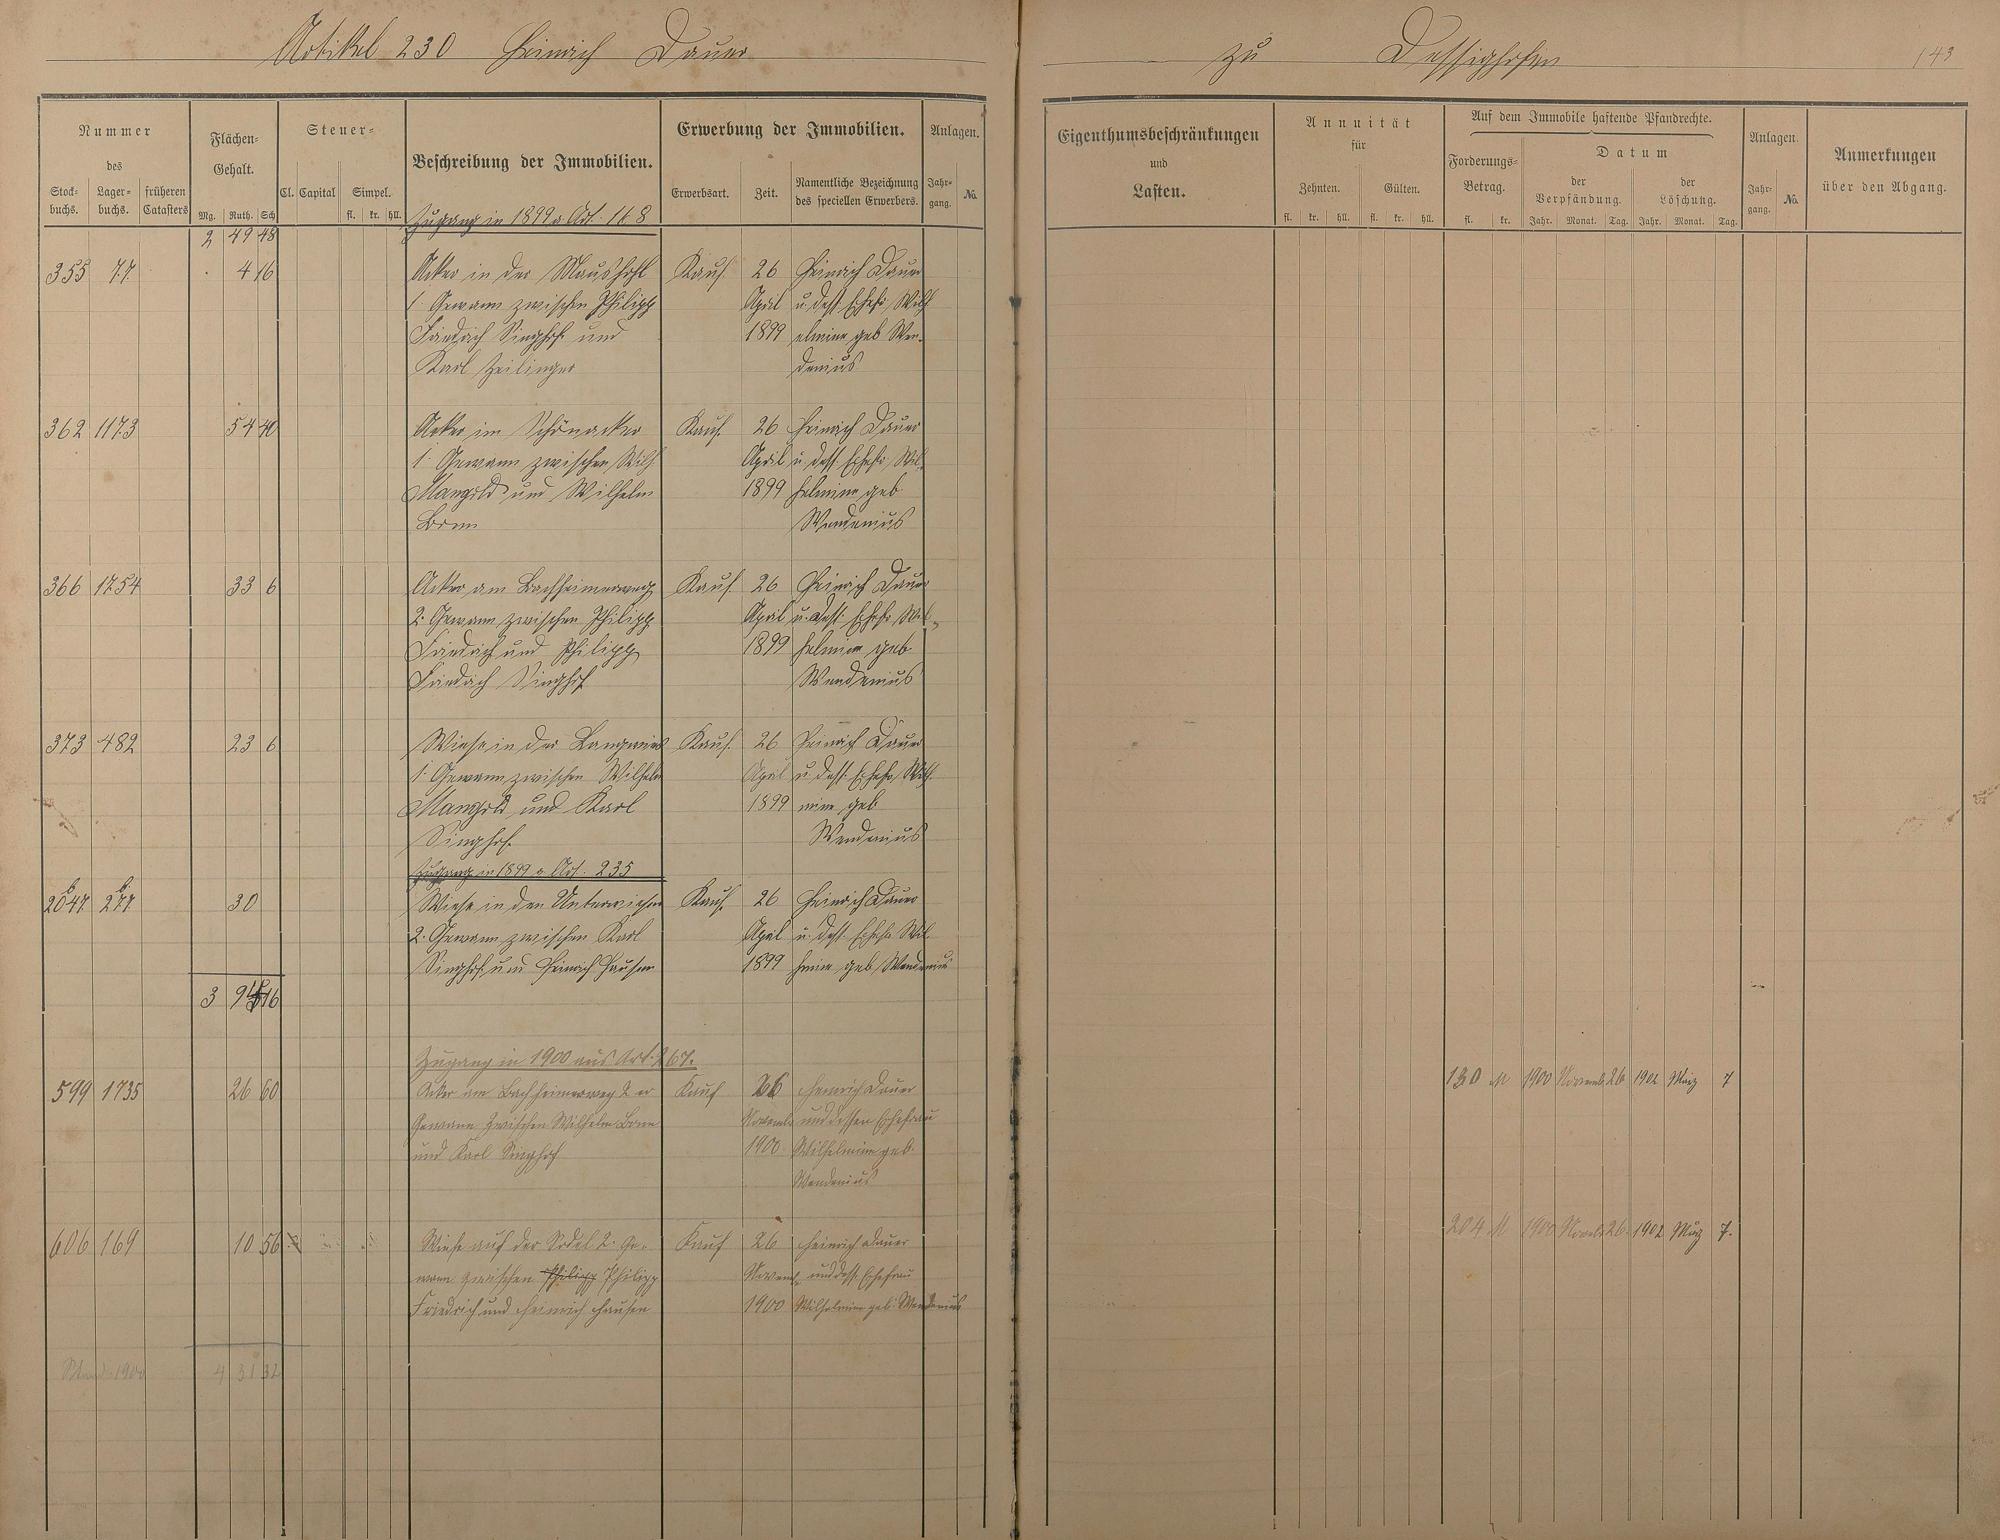 Artikel 230 Heinrich Dauer
zu Dessighofen 143
Nummer
des
Stock-
buchs.
Lager-
buchs.
früheren
Catasters
Flächen-
Gehalt.
Mg. Ruth. Sch
Steuer-
Cl. Capital Simpel.
fl. kr. hll.
Beschreibung der Immobilien.
Erwerbung der Immobilien.
Erwerbsart. Zeit. Namentliche Bezeichnung
des speciellen Erwerbers.
Anlagen.
Jahr-
gang. No.
Eigenthumsbeschränkungen
und
Lasten.
Annuität
für
Zehnten. Gülten.
fl. kr. hll. fl. kr. hll.
Auf dem Immobile haftende Pfandrechte.
Forderungs-
Betrag.
fl. kr.
Datum
der
Verpfändung.
Jahr. Monat. Tag.
der
Löschung.
Jahr. Monat. Tag.
Anlagen.
Jahr-
gang. No.
Anmerkungen
über den Abgang.
Zugang in 1899 a. Art. 168
2 49 48
355 77 4 16 Acker in der Maushohl Kauf. 26 Heinrich Dauer
1. Gewann zwischen Philipp April u. dess. Ehefr. Wilh
Friedrich Singhof und 1899 elmine geb Wen-
Karl Zeilinger denius
362 1173 54 40 Acker im Schönacker Kauf. 26 Heinrich Dauer
1. Gewann zwischen Wilh April u. dess. Ehefr. Wil-
Mangold und Wilhelm 1899 helmine geb
Bonn Wendenius
366 1754 33 6 Acker am Bachheimerweg Kauf. 26 Heinrich Dauer
2. Gewann zwischen Philipp April u. dess. Ehefr. Wil-
Friedrich und Philipp 1899 helmine geb
Friedrich Singhof Wendenius
373 482 23 6 Wiese in der Langwies Kauf. 26 Heinrich Dauer
1. Gewann zwischen Wilhelm April u. dess. Ehefr. Wilh
Mangold und Karl 1899 mine geb
Singhof. Wendenius
Zugang in 1899 a. Art. 235
30 Wiese in den Unterwiesen Kauf. 26 Heinrich Dauer
2. Gewann zwischen Karl April u. dess. Ehefr. Wil
Singhof und Heinrich Hausen 1899 hmine geb Wendenius
3 94 16
Zugang in 1900 aus Art. 267.
599 1735 26 60 Acker am Bachheimerweg 2 er Kauf 26 Heinrich Dauer 130 M 1900 Novemb. 26 1902 März 7
Gewann zwischen Wilhelm Bonn Novemb. und dessen Ehefrau
und Karl Singhof 1900 Wilhelmine geb.
Wendenius
606 169 10 56 Wiese auf der Sodel 2. Ge- Kauf 26 Heinrich Dauer 204 M 1900 Novemb. 26. 1902 März 7.
wann zwischen Philipp Philipp Novemb. und dess. Ehefrau
Friedrich und Heinrich Hausen 1900 Wilhelmine geb. Wendenius
Stand 1900 4 31 32